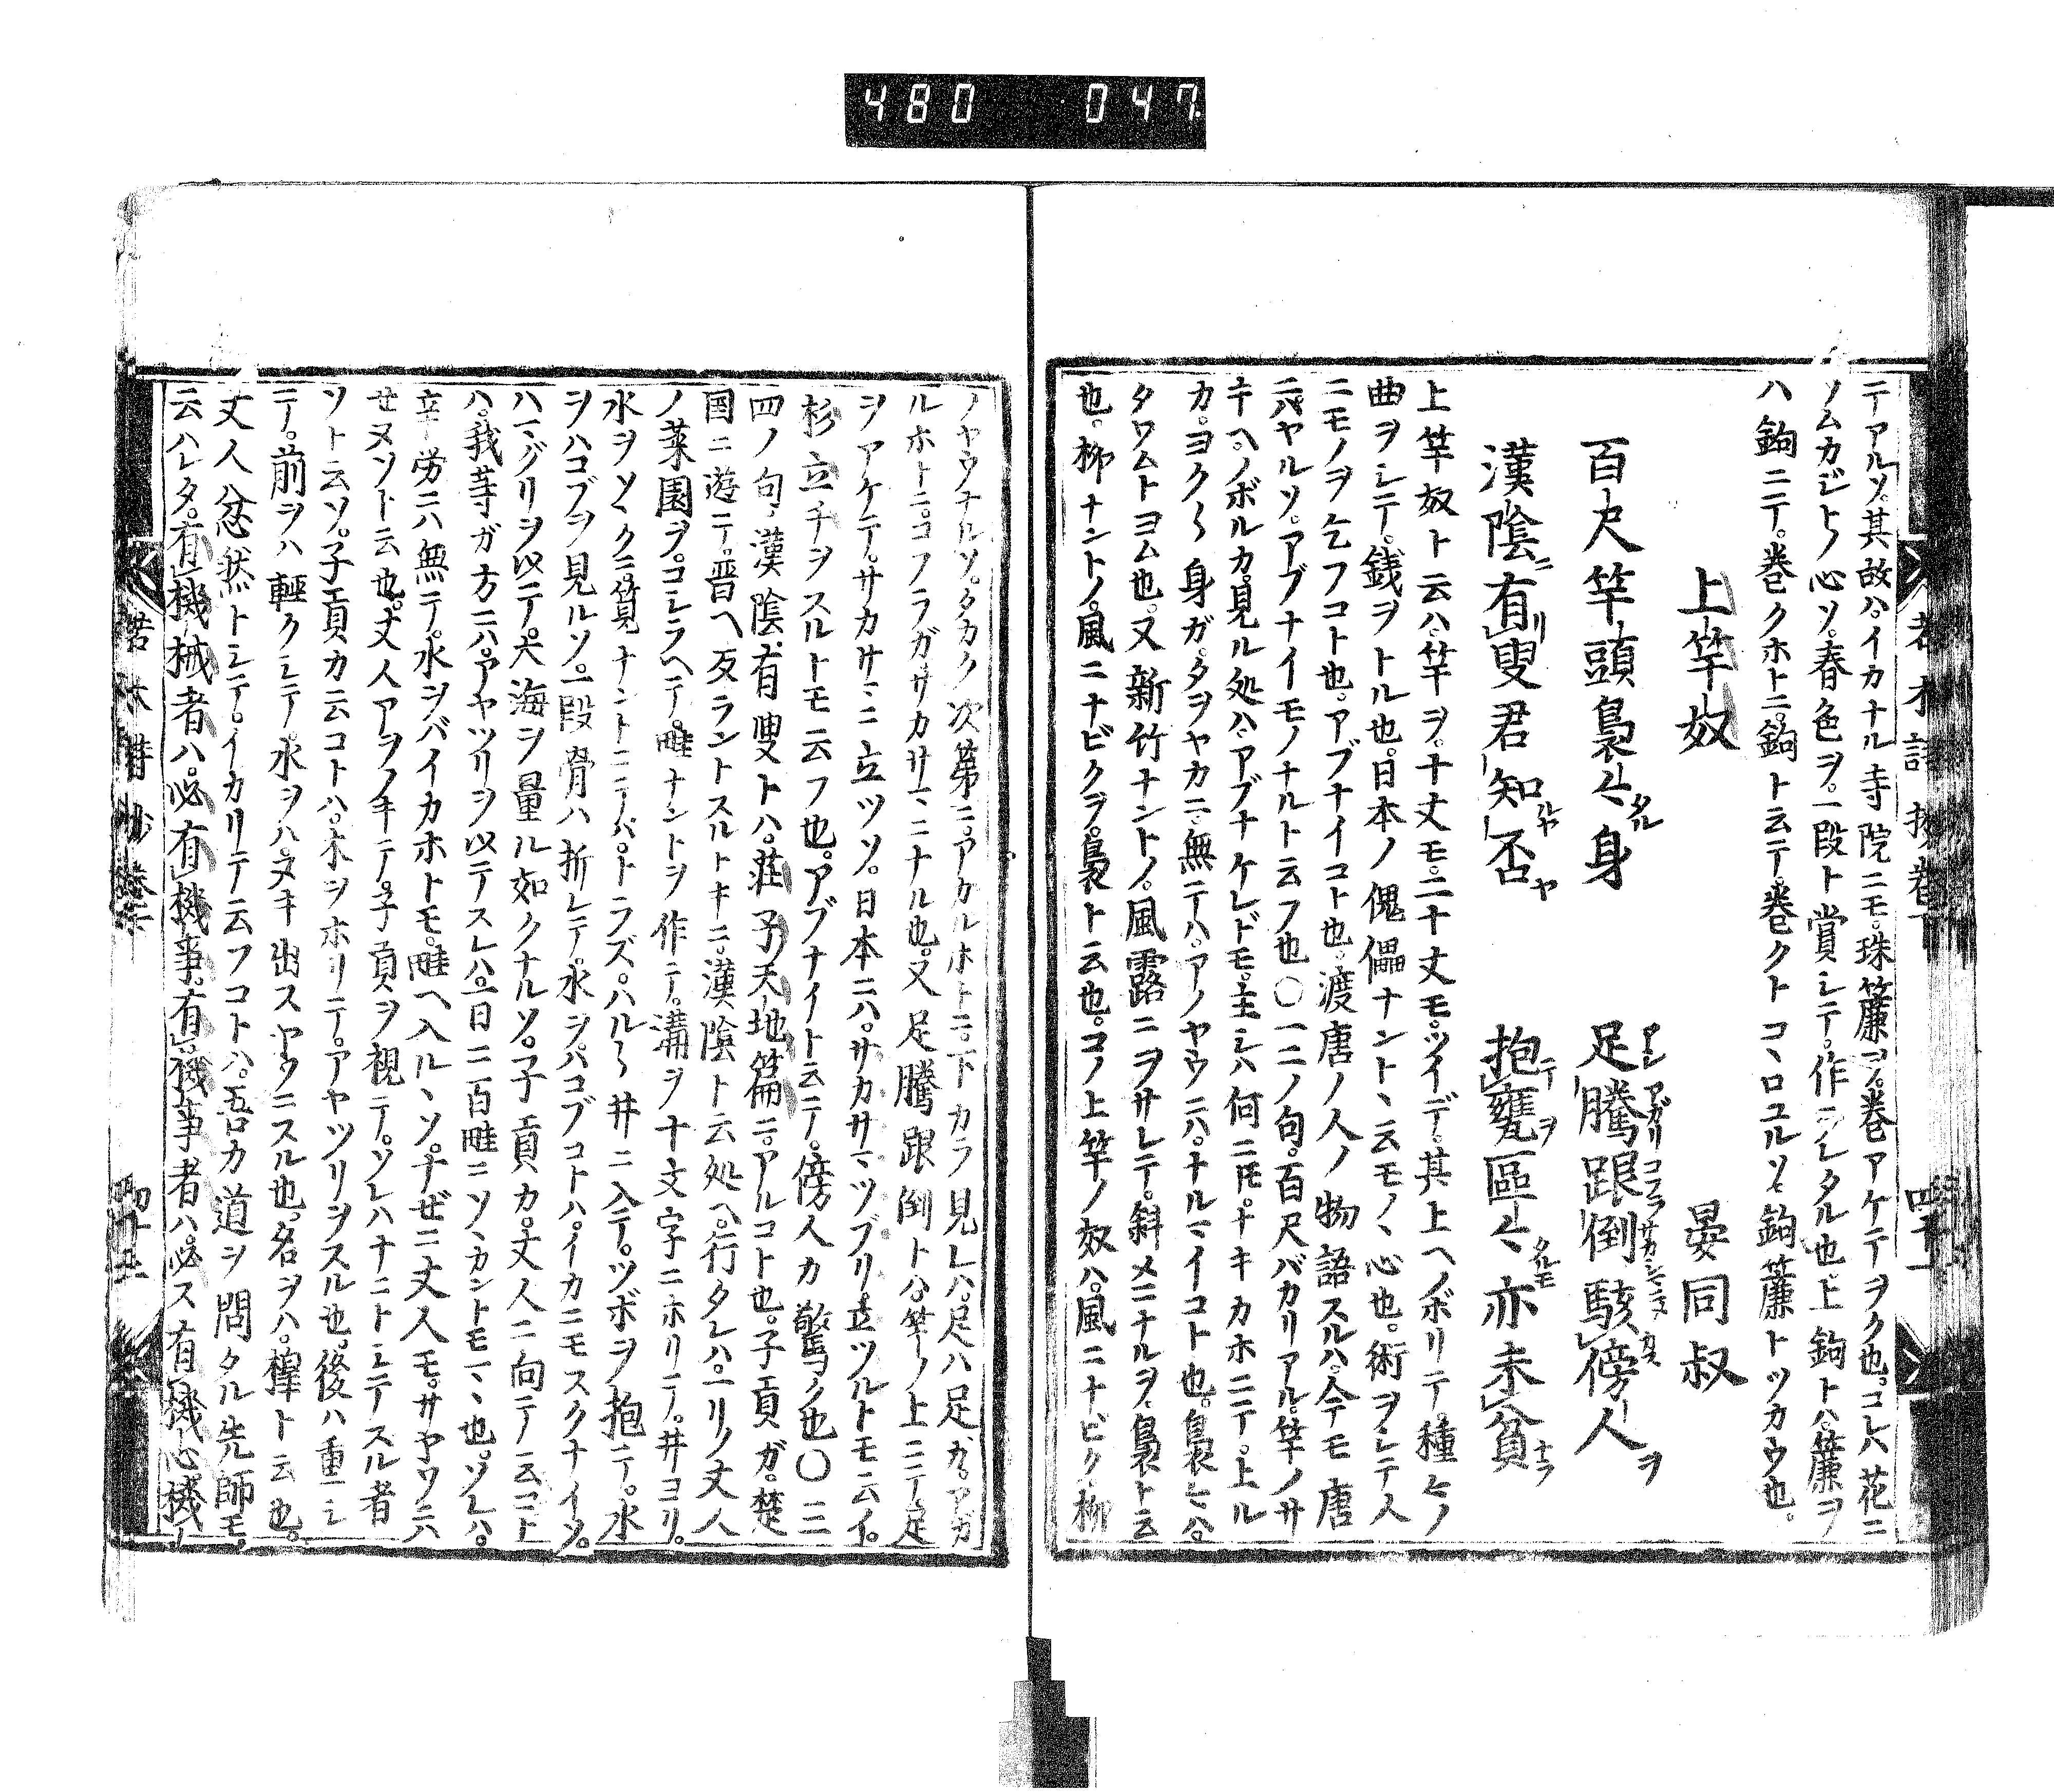 480 047
テアルソ。其故ハ。イカナル寺院ニモ。珠簾ヲ。巻アケテヲク也。コレハ花ニ
ソムカジトノ心ソ。春色ヲ。一段ト賞シテ。作ラレタル也。上鉤トハ。簾ヲ
ハ鉤ニテ。巻クホトニ。鉤ト云テ。巻クトコヽロユルソ。鉤簾トツカウ也。
上竿奴 晏同叔
百尺竿頭裊々タル身 足騰跟倒駭傍人ヲ
漢陰ニ有リ叟君知ルヤ否ヤ 抱テ甕ヲ區々タルモ亦未貧ナラ
上竿奴ト云ハ。竿ヲ。十丈モ。二十丈モ。ツイデ。其上ヘノボリテ。種々ノ
曲ヲシテ。銭ヲトル也。日本ノ傀儡ナントヽ云モノヽ心也。術ヲシテ人
ニモノヲ乞フコト也。アブナイコト也。渡唐ノ人ノ物語スルハ。今モ唐
ニハヤルソ。アブナイモノナルト云フ也〇一二ノ句。百尺バカリアル。竿ノサ
キヘ。ノボルカ。見ル処ハ。アブナケレドモ。主シハ何ニトモ。ナキカホニテ。上ル
カ。ヨク〱身ガ。タヲヤカニ無テハ。アノヤウニハ。ナルマイコト也。裊々ハ。
タワムトヨム也。又新竹ナントノ。風露ニヲサレテ。斜メニナルヲ。裊ト云
也。柳ナントノ。風ニナビクヲ。裊ト云也。コノ上竿ノ奴ハ。風ニナビク柳
ノヤウナルソ。タカク次第ニ。アカルホトニ。下カラ見レハ。足ハ足ガ。アガ
ルホトニ。コフラガサカサマニナル也。又足騰跟倒トハ。竿ノ上ニテ足
ヲアケテ。サカサマニ立ツソ。日本ニハ。サカサマツブリ。立ツルトモ云イ。
杉立チヲスルトモ云フ也。アブナイト云テ。傍人カ驚ク也〇三
四ノ句。漢陰有叟トハ。荘子天地篇ニ。アルコト也。子貢ガ。楚
国ニ遊テ。晋ヘ反ラントスルトキニ。漢陰ト云処ヘ。行タレハ。一リノ丈人
ノ菜園ヲ。コシラヘテ。畦ナントヲ作テ。溝ヲ十文字ニホリテ。井ヨリ。
水ヲソヽクニ。筧ナントニテハ。トラズ。ハル〱井ニ入テ。ツボヲ抱テ。水
ヲハコブヲ見ルソ。一段骨ハ折レテ。水ヲハコブコトハ。イカニモスクナイソ。
ハマグリヲ以テ。大海ヲ量ル如クナルソ。子貢カ。丈人ニ向テ云コト
ハ。我等ガ方ニハ。アヤツリヲ以テスレハ。一日ニ百畦ニソヽカントモマヽ也。ソレハ。
辛労ニハ無テ。水ヲバイカホトモ。畦ヘ入ルヽソ。ナゼニ丈人モ。サヤウニハ
せヌソト云也。丈人アヲノキテ。子貢ヲ視テ。ソレハナニトシテスル者
ソト云ソ。子貢カ云コトハ。木ヲホリテ。アヤツリヲスル也。後ハ重ニシ
テ。前ヲハ輕クシテ。水ヲハ。ヌキ出スヤウニスル也。名ヲハ。槹ト云也。
丈人忿然トシテ。イカリテ云フコトハ。吾カ道ヲ問タル先師モ。
云ハレタ。有機械者ハ。必有機事。有機事者ハ。必ス有機心。機